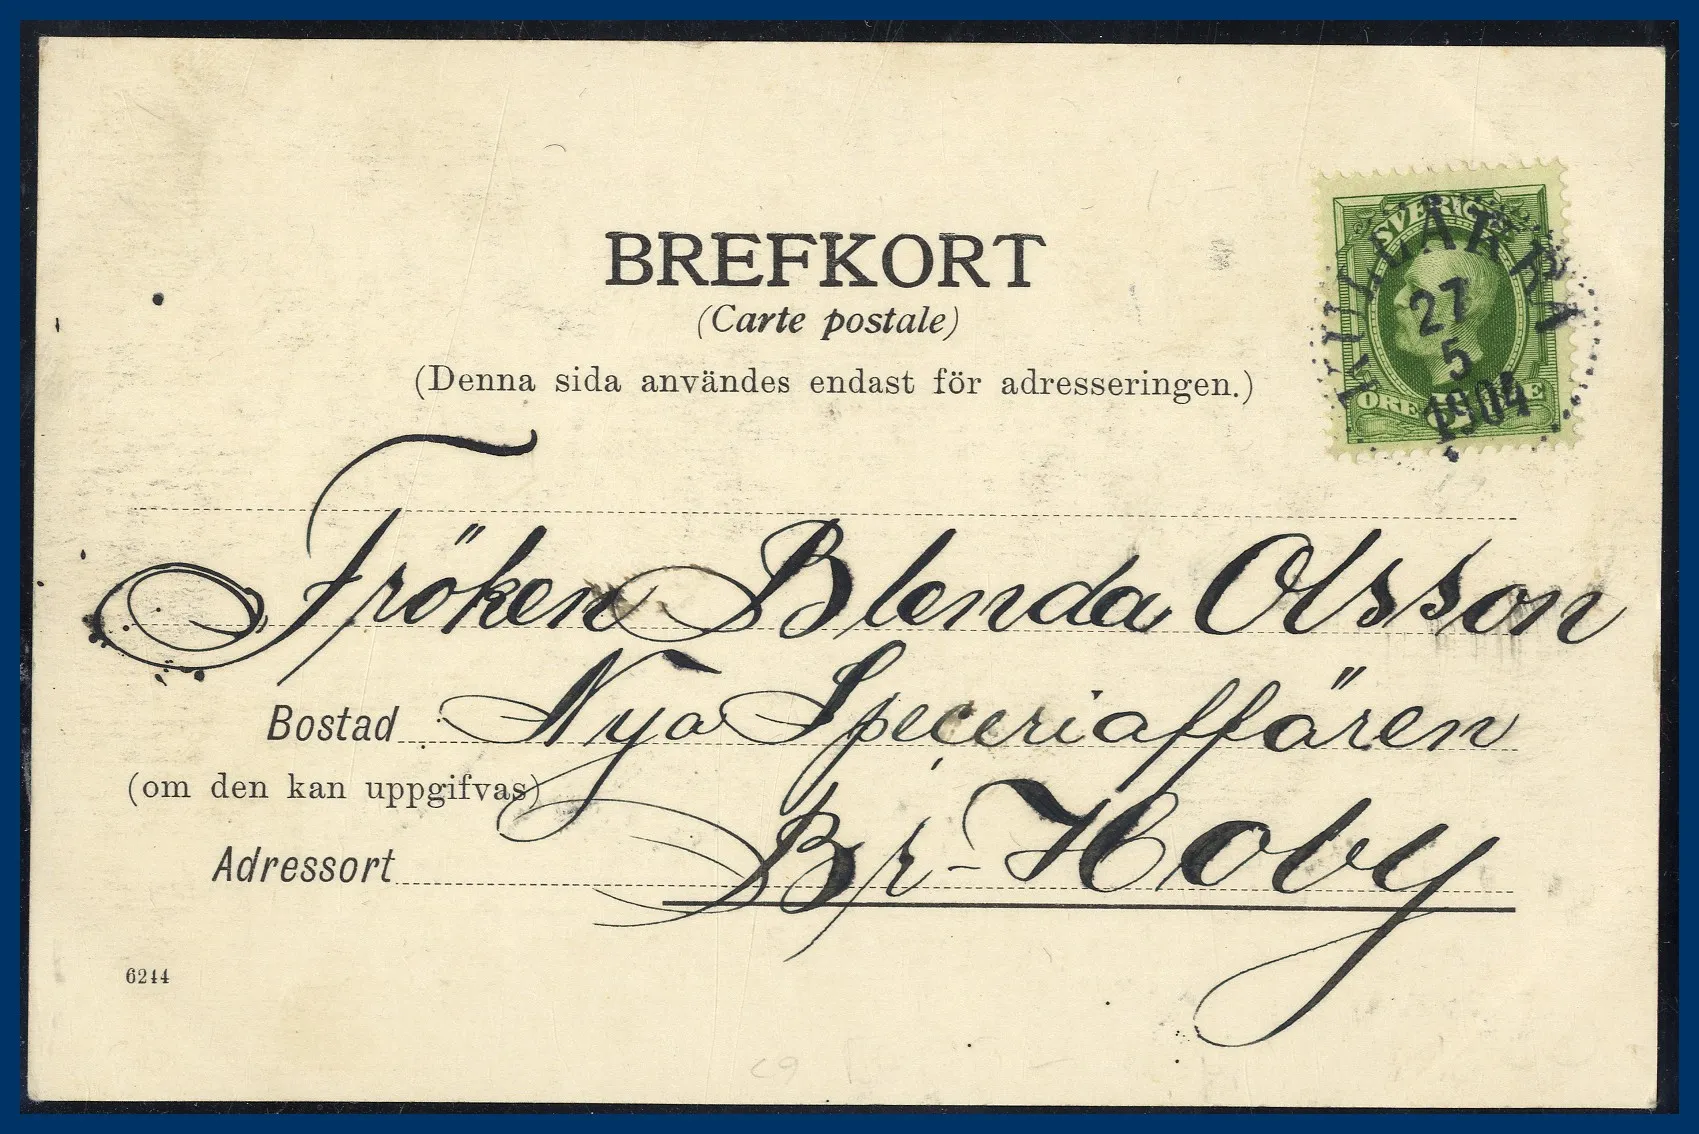 BREFKORT
(Carte postale)
(Denna sida användes endast för adresseringen.)
SVERIGE
KULLÅKRA
27
5
1904
ÖRE 5 ÖRE
Fröken Blenda Olsson
Bostad Nya Speceriaffären
(om den kan uppgifvas)
Adressort Br-Hoby
6244